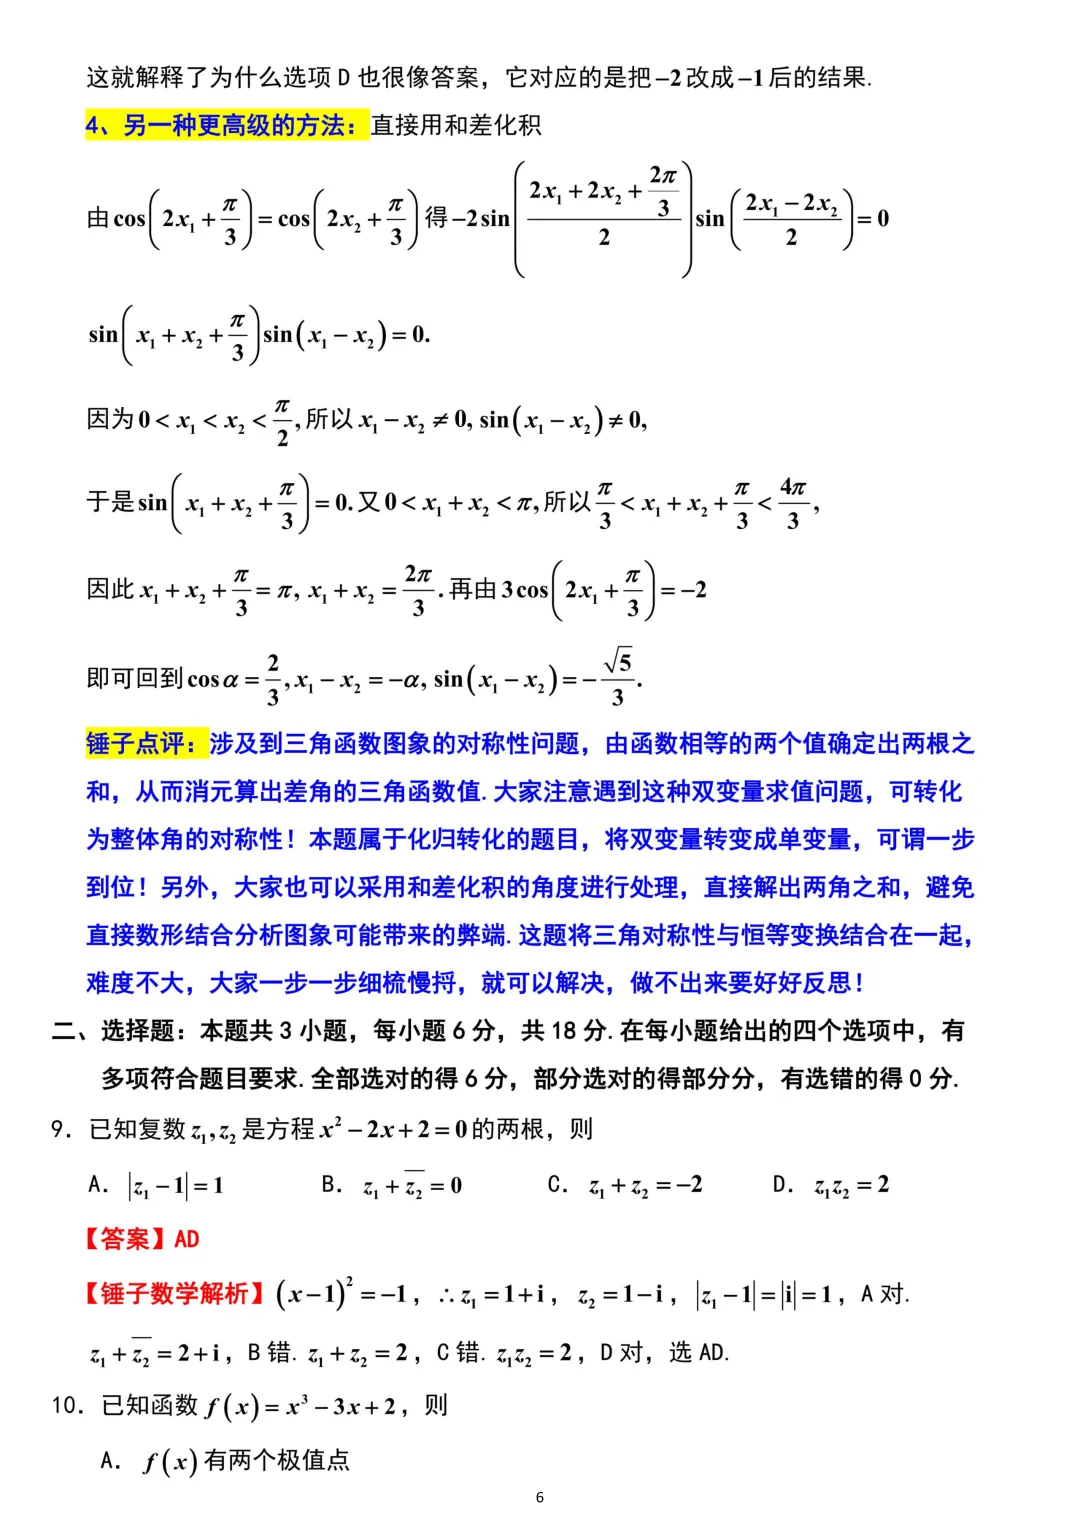 这就解释了为什么选项 D 也很像答案，它对应的是把−2改成−1后的结果.
4、另一种更高级的方法：直接用和差化积
由cos(2x₁+π/3)=cos(2x₂+π/3)得−2sin((2x₁+2x₂+2π/3)/2)sin((2x₁−2x₂)/2)=0
sin(x₁+x₂+π/3)sin(x₁−x₂)=0.
因为0<x₁<x₂<π/2,所以x₁−x₂≠0, sin(x₁−x₂)≠0,
于是sin(x₁+x₂+π/3)=0.又0<x₁+x₂<π,所以π/3<x₁+x₂+π/3<4π/3,
因此x₁+x₂+π/3=π, x₁+x₂=2π/3.再由3cos(2x₁+π/3)=−2
即可回到cosα=2/3, x₁−x₂=−α, sin(x₁−x₂)=−√5/3.
锤子点评：涉及到三角函数图象的对称性问题，由函数相等的两个值确定出两根之
和，从而消元算出差角的三角函数值.大家注意遇到这种双变量求值问题，可转化
为整体角的对称性！本题属于化归转化的题目，将双变量转变成单变量，可谓一步
到位！另外，大家也可以采用和差化积的角度进行处理，直接解出两角之和，避免
直接数形结合分析图象可能带来的弊端.这题将三角对称性与恒等变换结合在一起，
难度不大，大家一步一步细梳慢捋，就可以解决，做不出来要好好反思！
二、选择题：本题共 3 小题，每小题 6 分，共 18 分.在每小题给出的四个选项中，有
多项符合题目要求.全部选对的得 6 分，部分选对的得部分分，有选错的得 0 分.
9. 已知复数z₁,z₂是方程x²−2x+2=0的两根，则
A. |z₁−1|=1 B. z₁+z̅₂=0 C. z₁+z₂=−2 D. z₁z₂=2
【答案】AD
【锤子数学解析】(x−1)²=−1，∴z₁=1+i，z₂=1−i，|z₁−1|=|i|=1，A 对.
z₁+z̅₂=2+i，B 错. z₁+z₂=2，C 错. z₁z₂=2，D 对，选 AD.
10. 已知函数f(x)=x³−3x+2，则
A. f(x)有两个极值点
6